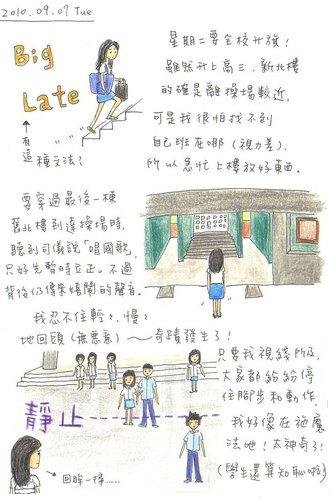 2010.09.07 Tue
Big
Late
有這種文法?
星期二要全校升旗!
雖然升上高三,新北樓
的確是離操場較近,
可是我很怕找不到
自己班在哪(視力差),
所以急忙上樓放好東西.
要穿過最後一棟
舊北樓到達操場時,
聽到司儀說「唱國歌」
只好先暫時立正。不過
背後仍傳來嬉鬧的聲音。
我忍不住輕々、慢々
地回頭(無惡意)~奇蹟發生了!
只要我視線所及,
大家都紛紛停
住腳步和動作,
我好像在施魔
法吔!太神奇了!
(學生還算知恥啦)
靜止
回眸一掃……